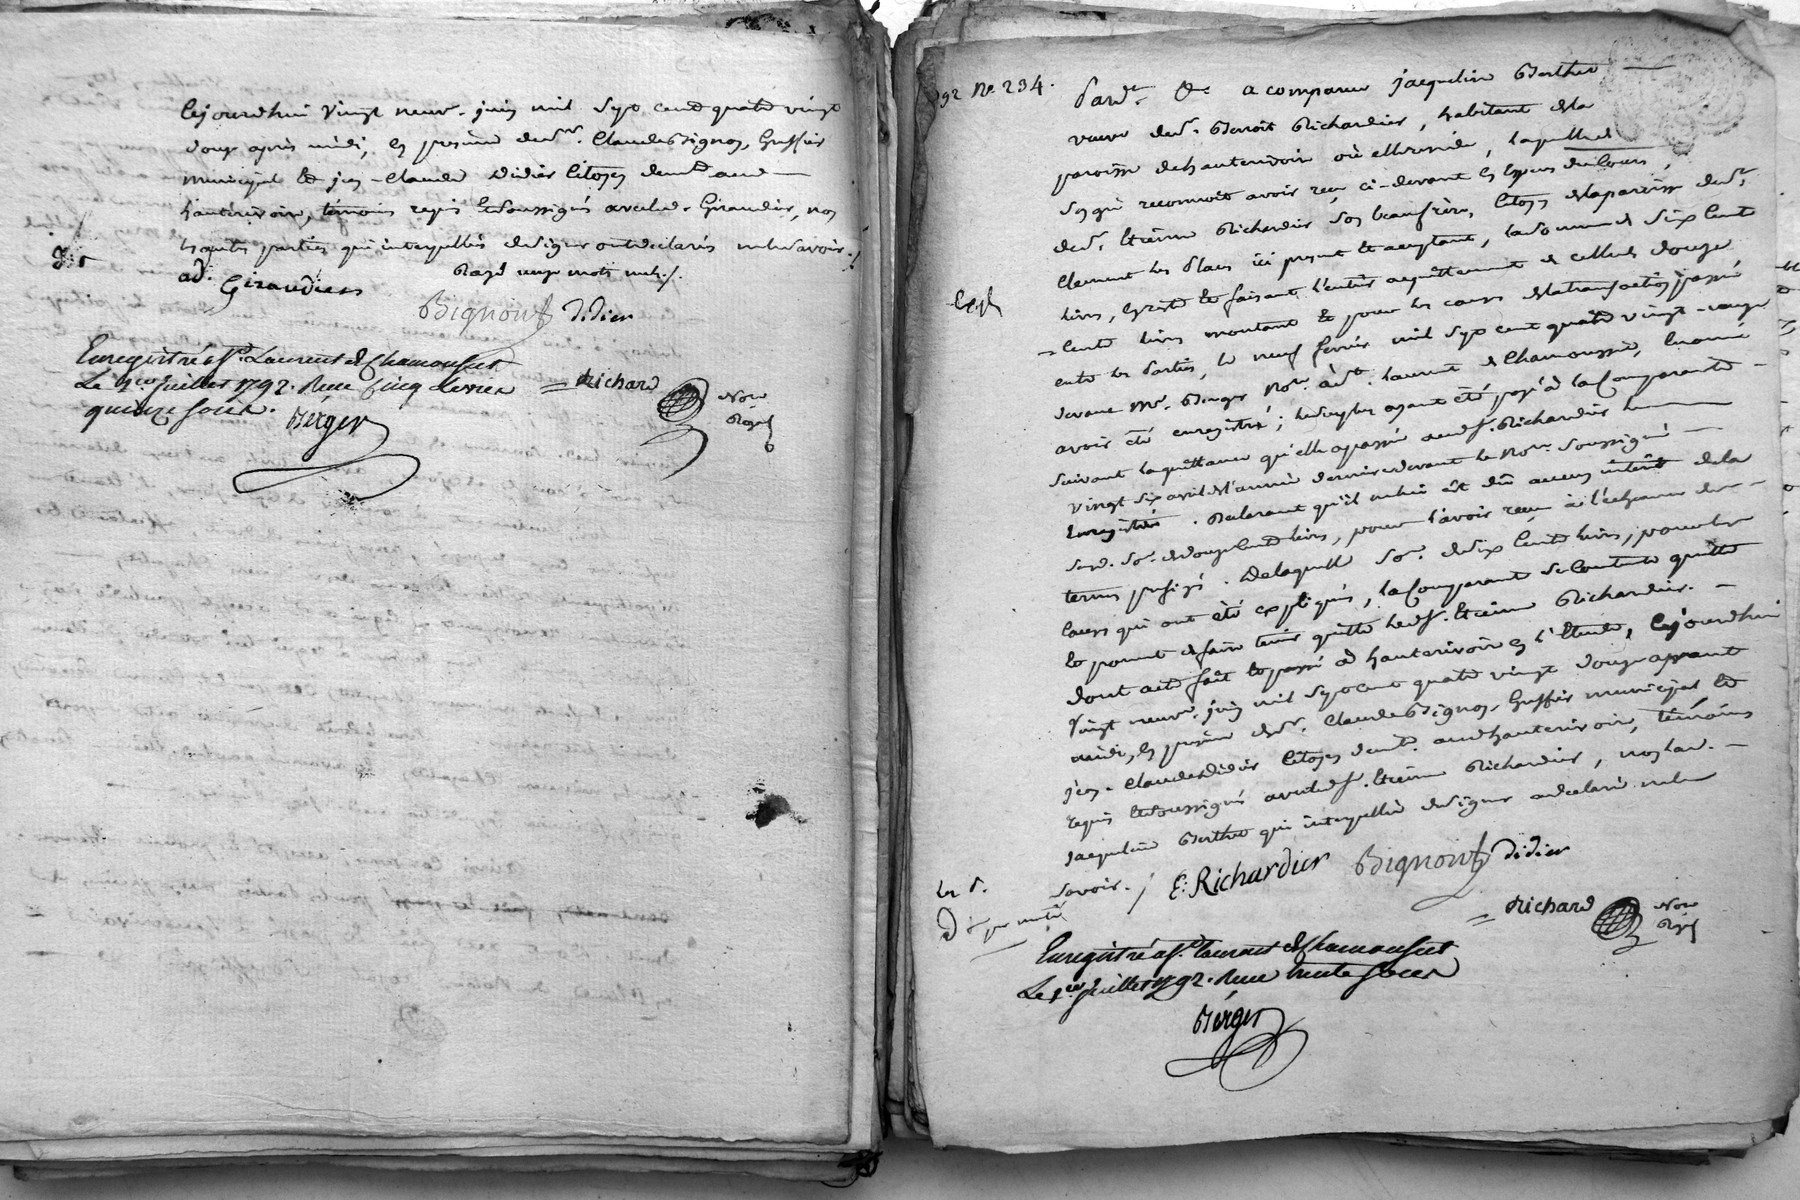 Cejourdhui vingt neuf juin mil sept cend quatre vingt
douze après midi, en presence de Sr. Claude Bignon, Greffier
municipal et jean-Claude Didier Citoyen demt aud
hauterivoire, témoins requis et Soussignés avec led. Giraudier, non
les autres parties qui interpellés de Signer ont declarés ne le Savoir./
ad. Giraudier Rayé mots nuls./.
Bignon Gff Didier
Enregistré a St. Laurent de Chamousset
Le 1er juillet 1792. Reçu Cinq Livres
quinze Sous. Berger
= Richard Nore Royal
92 No. 234.
Pardt. &c a comparue Jacqueline Berthet
veuve de Sr. Benoit Richardier, habitant de la
paroisse de hauterivoire où elle reside, laquelle
de gré reconnoit avoir reçu ci-devant en Especes de Cours,
de Sr. Etienne Richardier Son beaufrere, Citoyen de la paroisse de St.
Clement les Places ici present et acceptant, la Somme de Six Cent
livres, et faisant l'entier acquittement de celle de douze
Cents livres montant et pour les causes de la transaction passée
entre les Parties, le neuf fevrier mil Sept cent quatre vingt-onze
devant Mr. Berger Nore. à St. Laurent de Chamousset, Enoncé
avoir été enregistré; le Surplus ayant été payé à la Comparante
Suivant la quittance qu'elle a passé aud. Sr. Richardier le
vingt Six avril de l'année derniere devant le Nore. Soussigné
Enregistrée. Declarant qu'il ne lui est dû aucun intérêt de la
Susd. So. de douze Cend livres, pour l'avoir reçu à l'échéance du
terme prefigé. De laquelle So. de Six Cents livres, pour les
Causes qui ont été expliqués, la Comparant Se Contente quitte
et promet de faire tenir quitte led. Sr. Etienne Richardier.
Dont acte fait et passé à hauterivoire en l'Etude, Cejourdhui
Vingt neuf juin mil Sept cent quatre vingt douze avant
midi, en presence de Sr. Claude Bignon, Greffier municipal et
jean-Claude Didier Citoyen demt. aud hauterivoire, témoins
requis et Soussignés avec led Sr. Etienne Richardier, non lad.
Jacqueline Berthet qui interpellée de Signer a declaré ne le
Savoir./ E: Richardier Bignon Gff Didier
= Richard Nore Royal
Enregistré a St. Laurent de Chamousset
Le 1er juillet 1792. Reçu trente Sous
Berger